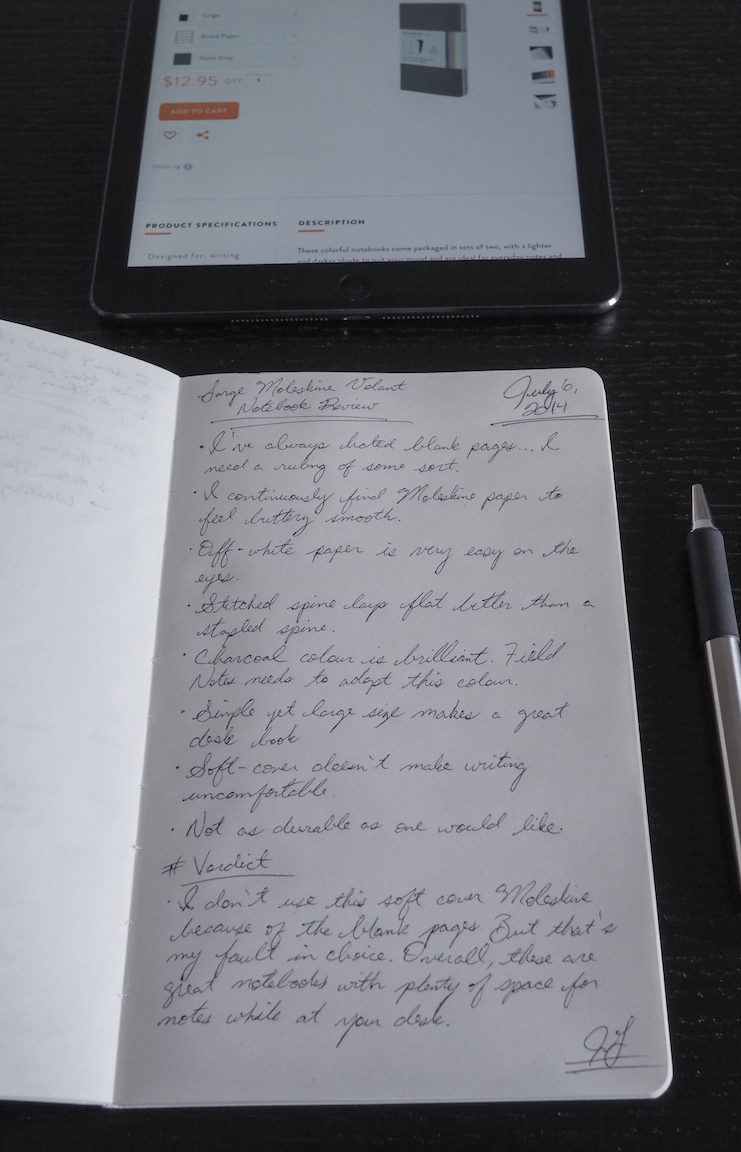 Large
Ruled Paper
Slate Gray
$12.95 QTY 1
ADD TO CART
Shipping
PRODUCT SPECIFICATIONS
Designed for: writing
DESCRIPTION
These colorful notebooks come packaged in sets of two, with a lighter
and darker shade to suit your mood and are ideal for everyday notes and
Large Moleskine Volant
Notebook Review
July 6,
2014
· I've always hated blank pages... I
need a ruling of some sort.
· I continuously find Moleskine paper to
feel buttery smooth.
· Off-white paper is very easy on the
eyes.
· Stitched spine lays flat better than a
stapled spine.
· Charcoal colour is brilliant. Field
Notes needs to adopt this colour.
· Simple yet large size makes a great
desk book
· Soft-cover doesn't make writing
uncomfortable.
· Not as durable as one would like.
# Verdict
· I don't use this soft cover Moleskine
because of the blank pages. But that's
my fault in choice. Overall, these are
great notebooks with plenty of space for
notes while at your desk.